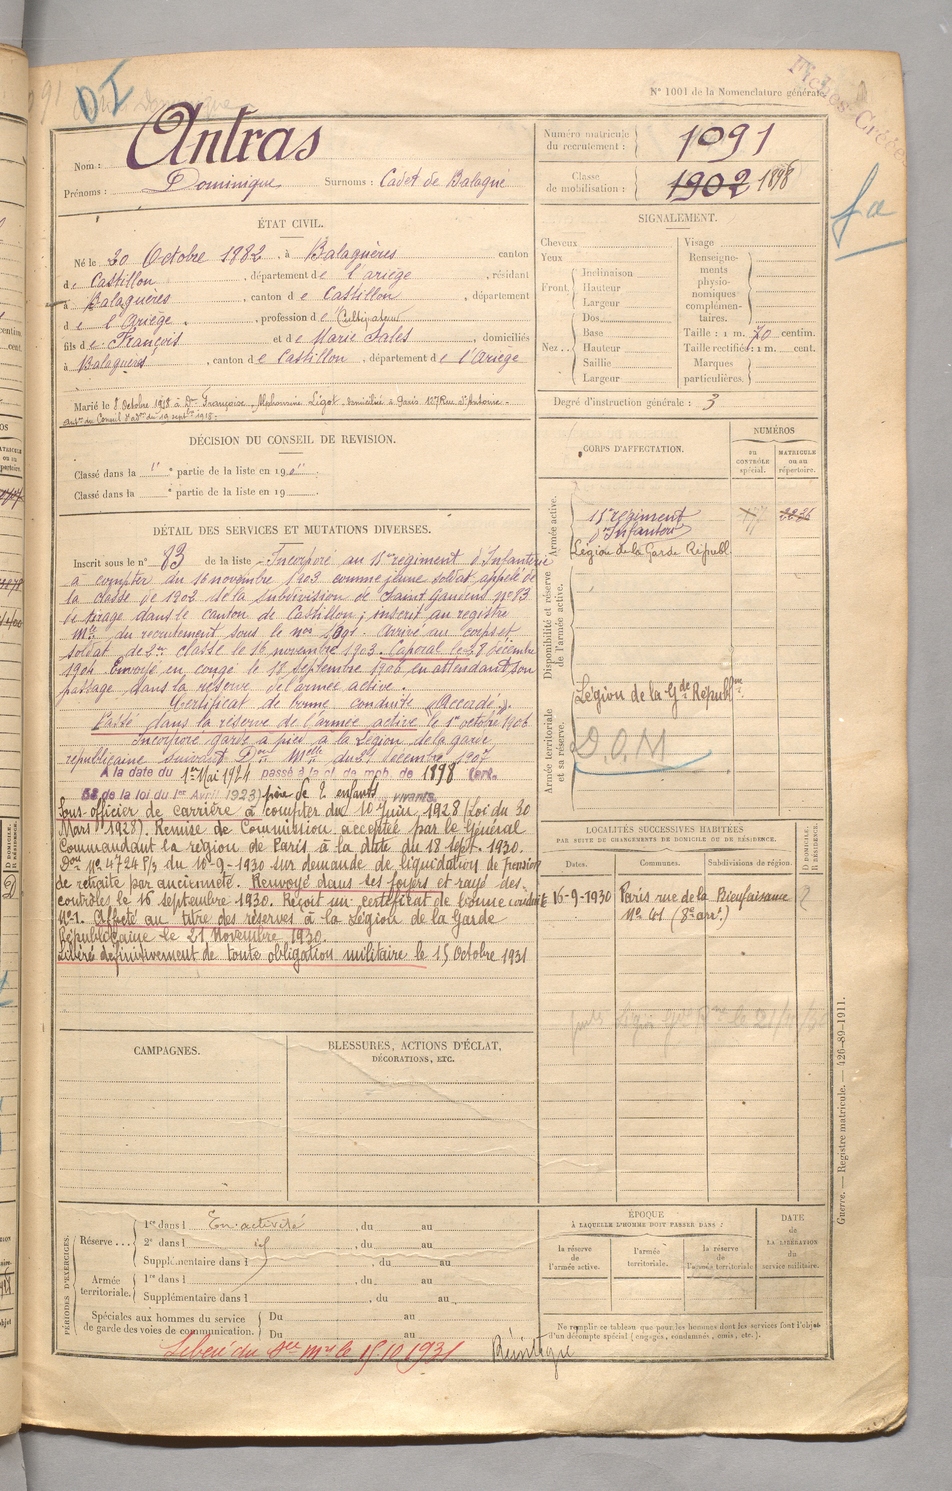 D I
Fiches Créées
N° 1001 de la Nomenclature générale.
Nom : Antras
Prénoms : Dominique Surnoms : Cadet de Balagué
Numéro matricule du recrutement : 1091
Classe de mobilisation : 1902 1898
ÉTAT CIVIL.
Né le 20 Octobre 1882, à Balaguères canton
de Castillon, département de l'ariège, résidant
à Balaguères, canton de Castillon, département
de l'Ariège, profession de Cultivateur
fils de François et de Marie Sales domiciliés
à Balaguères, canton de Castillon, département de l'Ariège
Marié le 8 Octobre 1918 à Dme Françoise, Alphonsine Ligot, domiciliée à Paris 127 Rue St Antoine -
aut. du Conseil d'adon du 19 septbre 1918.
SIGNALEMENT.
Cheveux
Yeux
Front. Inclinaison
Hauteur
Largeur
Nez .. Dos
Base
Hauteur
Saillie
Largeur
Visage
Renseignements physionomiques complémentaires.
Taille : 1 m. 70 centim.
Taille rectifiée : 1 m. cent.
Marques particulières.
Degré d'instruction générale : 3
DÉCISION DU CONSEIL DE REVISION.
Classé dans la 1re partie de la liste en 190
Classé dans la e partie de la liste en 19
DÉTAIL DES SERVICES ET MUTATIONS DIVERSES.
Inscrit sous le n° 83 de la liste - Incorporé au régiment d'Infanterie
à compter du 16 novembre 1903 comme jeune soldat appelé de
la classe de 1902 de la subdivision de Saint Gaudens n° 83
de tirage dans le canton de Castillon ; inscrit au registre
Mle du recrutement sous le no 1091. Arrivé au corps et
soldat de 2e classe le 16 novembre 1903. Caporal le 28 décembre
1904 Envoyé en congé le 18 septembre 1906 en attendant son
passage dans la réserve de l'armée active.
Certificat de bonne conduite "Accordé".
Passé dans la réserve de l'armée active le 1er octobre 1906
Incorporé garde à pied à la Légion de la garde
républicaine suivant Don Melle du 29 décembre 1907
A la date du 1er Mai 1924 passé à la cl. de mob. de 1898 (art.
58 de la loi du 1er Avril 1923) père de 2 enfants vivants.
Sous-officier de carrière à compter du 10 Juin 1928 (Loi du 30
Mars 1928). Remise de Commission acceptée par le Général
Commandant la région de Paris à la date du 18 sept. 1930.
Don N° 4724 P/3 du 10-9-1930 sur demande de liquidation de pension
de retraite par ancienneté. Renvoyé dans ses foyers et rayé des
contrôles le 16 septembre 1930. Reçoit un certificat de bonne conduite
N°1. Affecté au titre des réserves à la Légion de la Garde
Républicaine le 21 Novembre 1930.
Libéré définitivement de toute obligation militaire le 15 Octobre 1931
CORPS D'AFFECTATION.
NUMÉROS
au CONTRÔLE spécial.
MATRICULE ou au répertoire.
Armée active.
régiment d'Infanterie
Légion de la Garde Républ.
Disponibilité et réserve de l'armée active.
Légion de la Gde Républne
Armée territoriale et sa réserve.
D.O.M
LOCALITÉS SUCCESSIVES HABITÉES
PAR SUITE DE CHANGEMENTS DE DOMICILE OU DE RÉSIDENCE.
Dates. Communes. Subdivisions de région. D DOMICILE. R RÉSIDENCE.
16-9-1930 Paris rue de la Bienfaisance
N° 41 (8e arrt)
CAMPAGNES.
BLESSURES, ACTIONS D'ÉCLAT, DÉCORATIONS, ETC.
PÉRIODES D'EXERCICES.
Réserve ... 1re dans l En activité, du au
2e dans l id, du au
Supplémentaire dans l, du au
Armée territoriale. 1re dans l, du au
Supplémentaire dans l, du au
Spéciales aux hommes du service de garde des voies de communication. Du au
Du au
ÉPOQUE
À LAQUELLE L'HOMME DOIT PASSER DANS :
la réserve de l'armée active.
l'armée territoriale.
la réserve de l'armée territoriale
DATE de LA LIBÉRATION du service militaire.
Ne remplir ce tableau que pour les hommes dont les services font l'objet
d'un décompte spécial (engagés, condamnés, omis, etc.).
Libéré du Sce Mre le 15/10/1931 Réintégré
Guerre. — Registre matricule. — 426-89-1911.